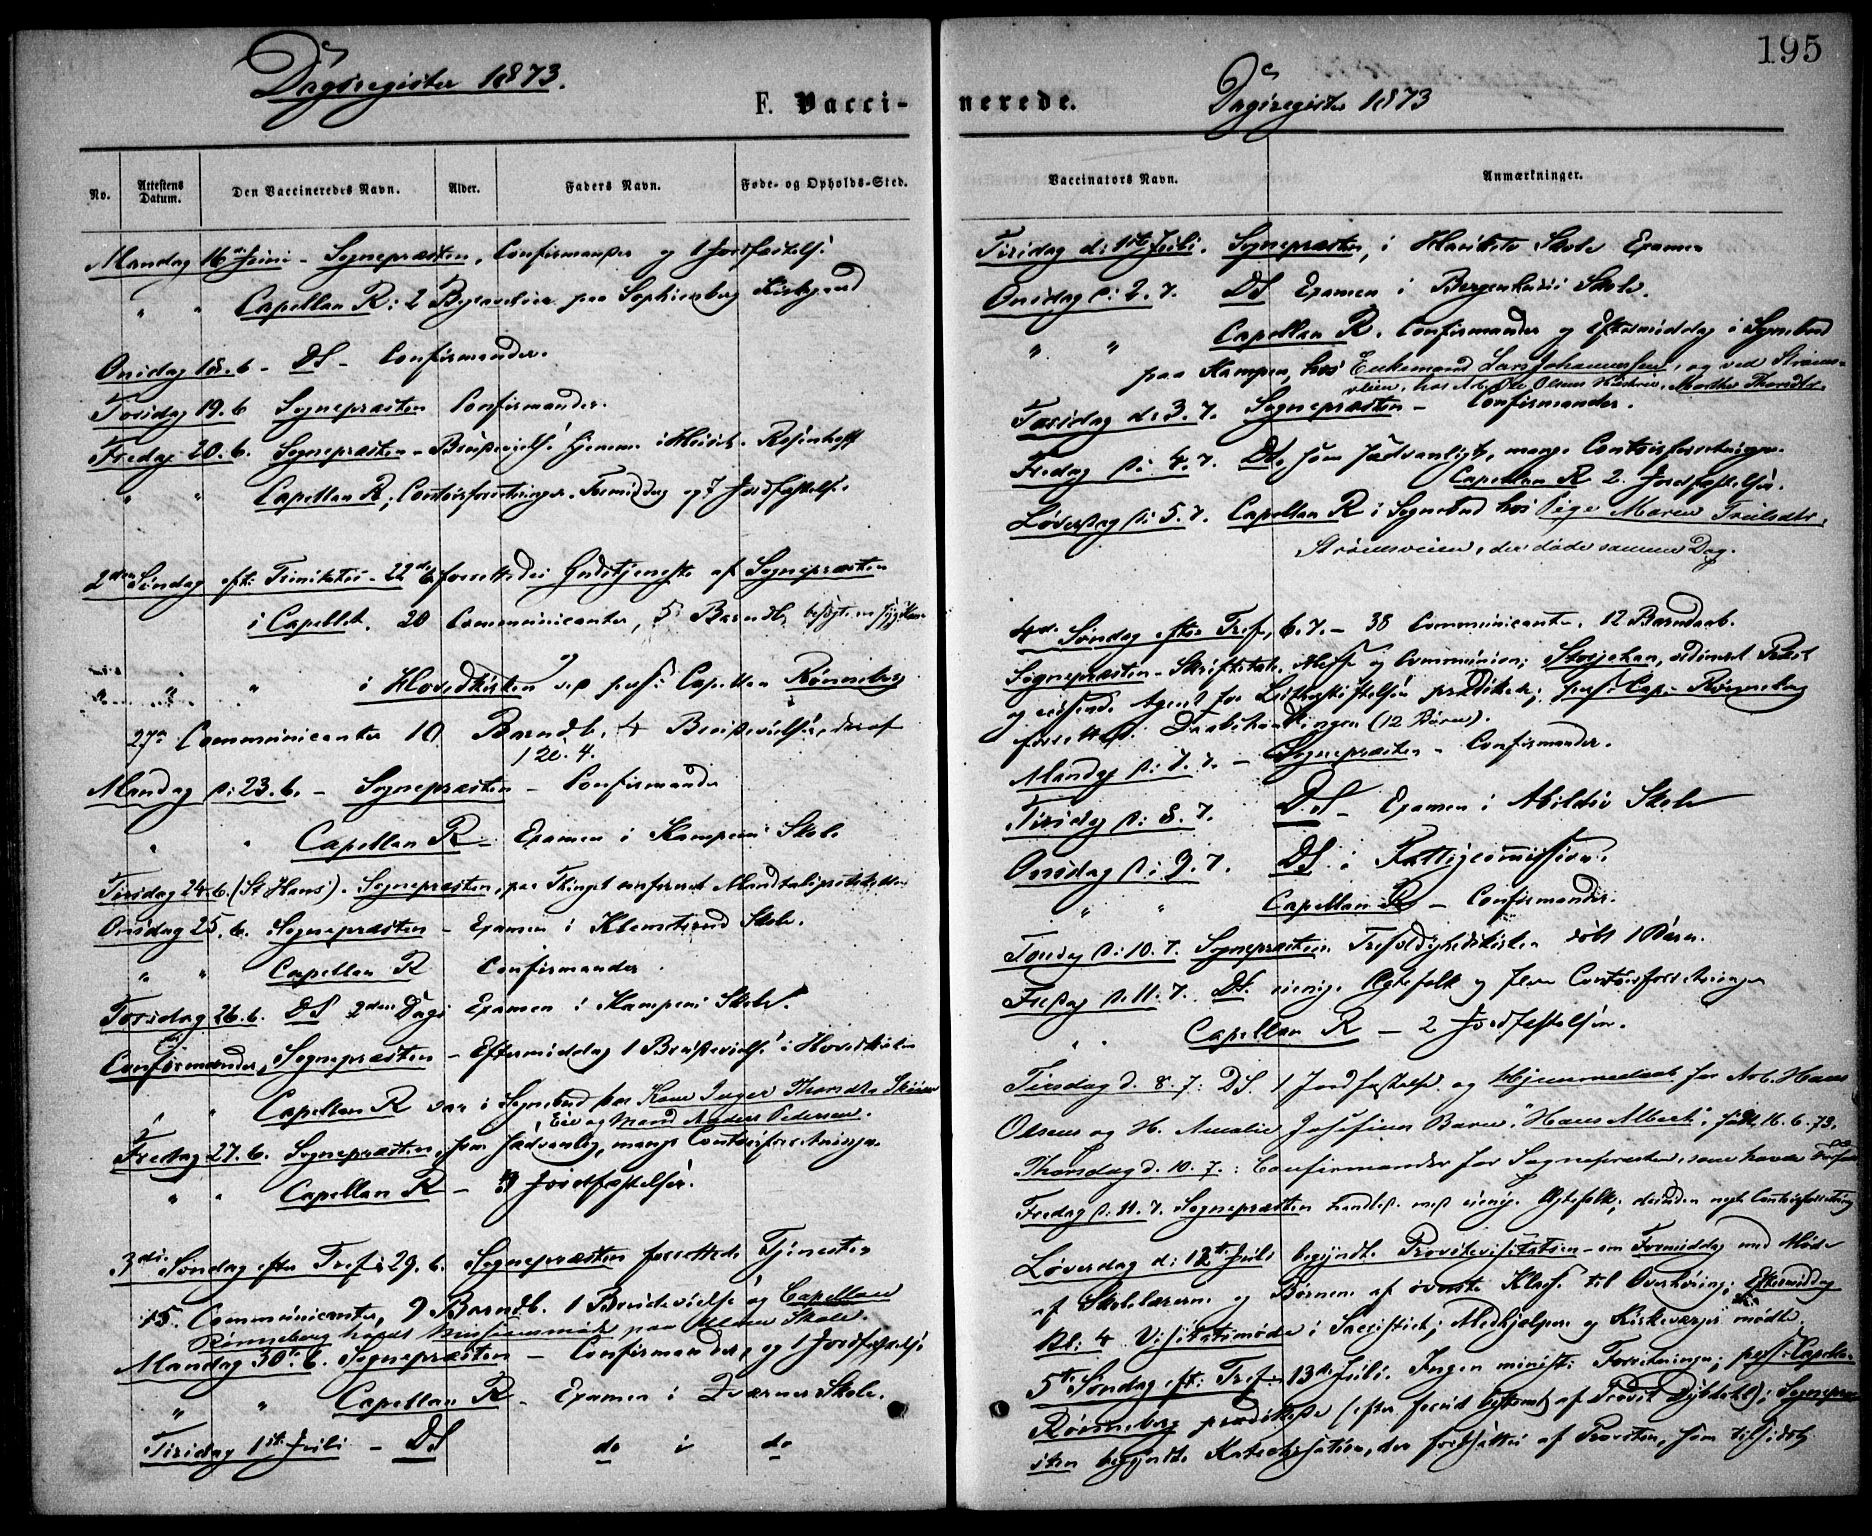 195
Dagsregister 1873.
F. Vacci-
No.
Attestens Datum.
Den Vaccineredes Navn.
Alder.
Faders Navn.
Føde- og Opholds-Sted.
Mandag 16de Juni - Sognepræsten, Confirmander og 1 Jordfæstelse
" " Capellan R: 2 Begravelser paa Sophienberg Kirkegaard
Onsdag 18. 6 - DS - Confirmander.
Torsdag 19. 6 Sognepræsten Confirmander.
Fredag 20. 6. Sognepræsten - Brudevielse hjemme i Huset - Rosenhoff
" " Capellan R, Contoirforretninger. Formiddag og 7 Jordfæstelser
2den Søndag eft: Trinitatis - 22de 6 forrettedes Gudstjeneste af Sognepræsten
i Capellet. 20 Communicanter, 5 Barndb,
" " i Hovedkirken ved pers: Capellan Rønneberg
27 Communicanter 10 Barndb. 4 Brudevielser, deraf
Mandag d: 23. 6. - Sognepræsten - Confirmander
" " Capellan R - Examen i Kampens Skole
Tirsdag 24. 6. (St Hans). Sognepræsten, paa Thinget confereret Mandtalsprotokollen
Onsdag 25. 6. Sognepræsten - Examen i Klemetsrud Skole.
" " Capellan R Confirmander.
Torsdag 26. 6. DS 2den Dags Examen i Kampens Skole.
Confirmander, Sognepræsten - Eftermiddag 1 Brudevielse i Hovedkirken
" Capellan R var i Sognebud hos Kone Inger Thorsdtr.
Eie og Mand Anders Pedersen.
Fredag 27. 6. Sognepræsten, som sædvanlig, mange Contoirforretninger
" " Capellan R - Jordfæstelser.
3die Søndag efter Tref: 29. 6. Sognepræsten forrettede Tjenesten
15. Communicanter, 9 Barndb. 1 Brudevielse og Capellan
Rønneberg holdt Missionsmøde paa Skole.
Mandag 30te 6. Sognepræsten - Confirmander, og 1 Jordfæstelse
" " Capellan R - Examen i Qværner Skole.
Tirsdag 1ste Juli - DS do i do
nerede.
Dagsregister 1873
Vaccinators Navn.
Anmærkninger.
Tirsdag d: 1ste Juli. Sognepræsten, i Skole Examen
Onsdag d: 2. 7. DS Examen i Bergenhuus Skole.
" " Capellan R. Confirmander og Eftermiddag i Sognebud
paa Kampen, hos Enkemand Lars Johannessen, og ved Strøms-
veien, hos Arb. Ole Olsens Hustru, Marthe Thorsdtr.
Torsdag d: 3. 7. Sognepræsten - Confirmander.
Fredag d: 4. 7. DS, som sædvanligt, mange Contoirforretninger.
Capellan R 2. Jordfæstelser.
Løverdag d: 5. 7. Capellan R i Sognebud hos Pige Maren
Strømsveien, der døde samme Dag.
4de Søndag efter Tref, 6. 7. - 38 Communicanter. 12 Barndaab.
Sognepræsten - Skriftetale, Messe og Communion; Storjohan, ordineret Præst
og reisende Agent for prædikede; pers: Cap. Rønneberg
forrettede Daabshandlingen (12 Børn).
Mandag d: 7. 7. - Sognepræsten - Confirmander.
Tirsdag d: 8. 7. DS - Examen i Abildsø Skole
Onsdag d: 9. 7. DS i Fattigcommission.
" " Capellan R - Confirmander.
Torsdag d: 10. 7. Sognepræsten Trefoldighedskirken døbt 1 Barn.
Fredag d. 11. 7. DS. uenige Ægtefolk og flere Contoirforretninger
" " Capellan R - 2 Jordfæstelser.
Tirsdag d. 8. 7: DS. 1 Jordfæstelse og Hjemmedaab for Arb. Hans
Olsens og H. Amalie Josefines Barn, "Hans Albert", født 16. 6. 73.
Thorsdag d. 10. 7.: Confirmander for Sognepræsten, som havde Forfald
Fredag d. 11. 7. Sognepræsten handlet med uenige Ægtefolk; desuden nogle Contoirforretninger
Løverdag d: 12te Juli begyndte Provstevisitatsen - om Formiddag med Møde
af Skolelærerne og Børnene af øverste Klasse til Overhøring; Eftermiddag
Kl: 4 Visitatsmøde i Sacristiet; Medhjælpere og Kirkeværger mødte.
5te Søndag eft: Tref - 13de Juli. Ingen minist: Forretninger; pers: Capellan
Rønneberg prædikede (efter forud bestemt af Provst Dybdahl); Sognepræ-
sten begyndte Katechisation, der fortsattes af Provsten, som tilsidst